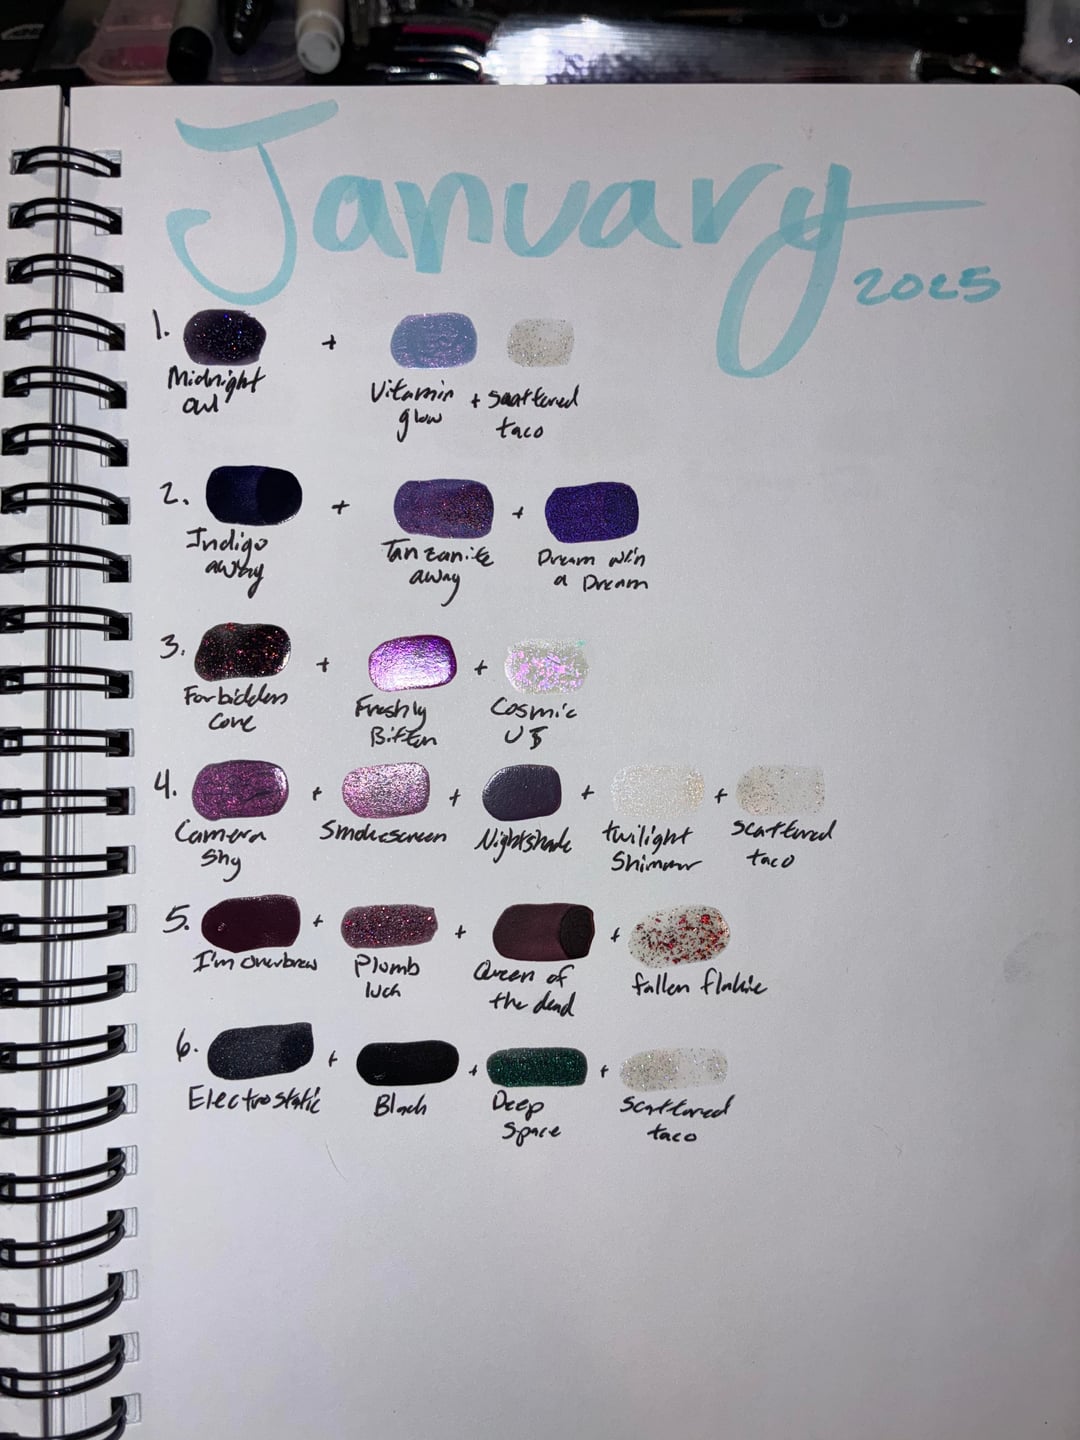 January
2025
1. + 
Midnight Vitamin + scattered
owl glow taco
2. + +
Indigo Tanzanite Dream w/in
away away a Dream
3. + +
Forbidden Freshly Cosmic
Core Bitten
4. + + + +
Camera Smokescreen Nightshade twilight scattered
Shy Shimmer taco
5. + + +
I'm overbrew Plumb Queen of fallen flakie
luck the dead
6. + + +
Electrostatic Black Deep scattered
Space taco